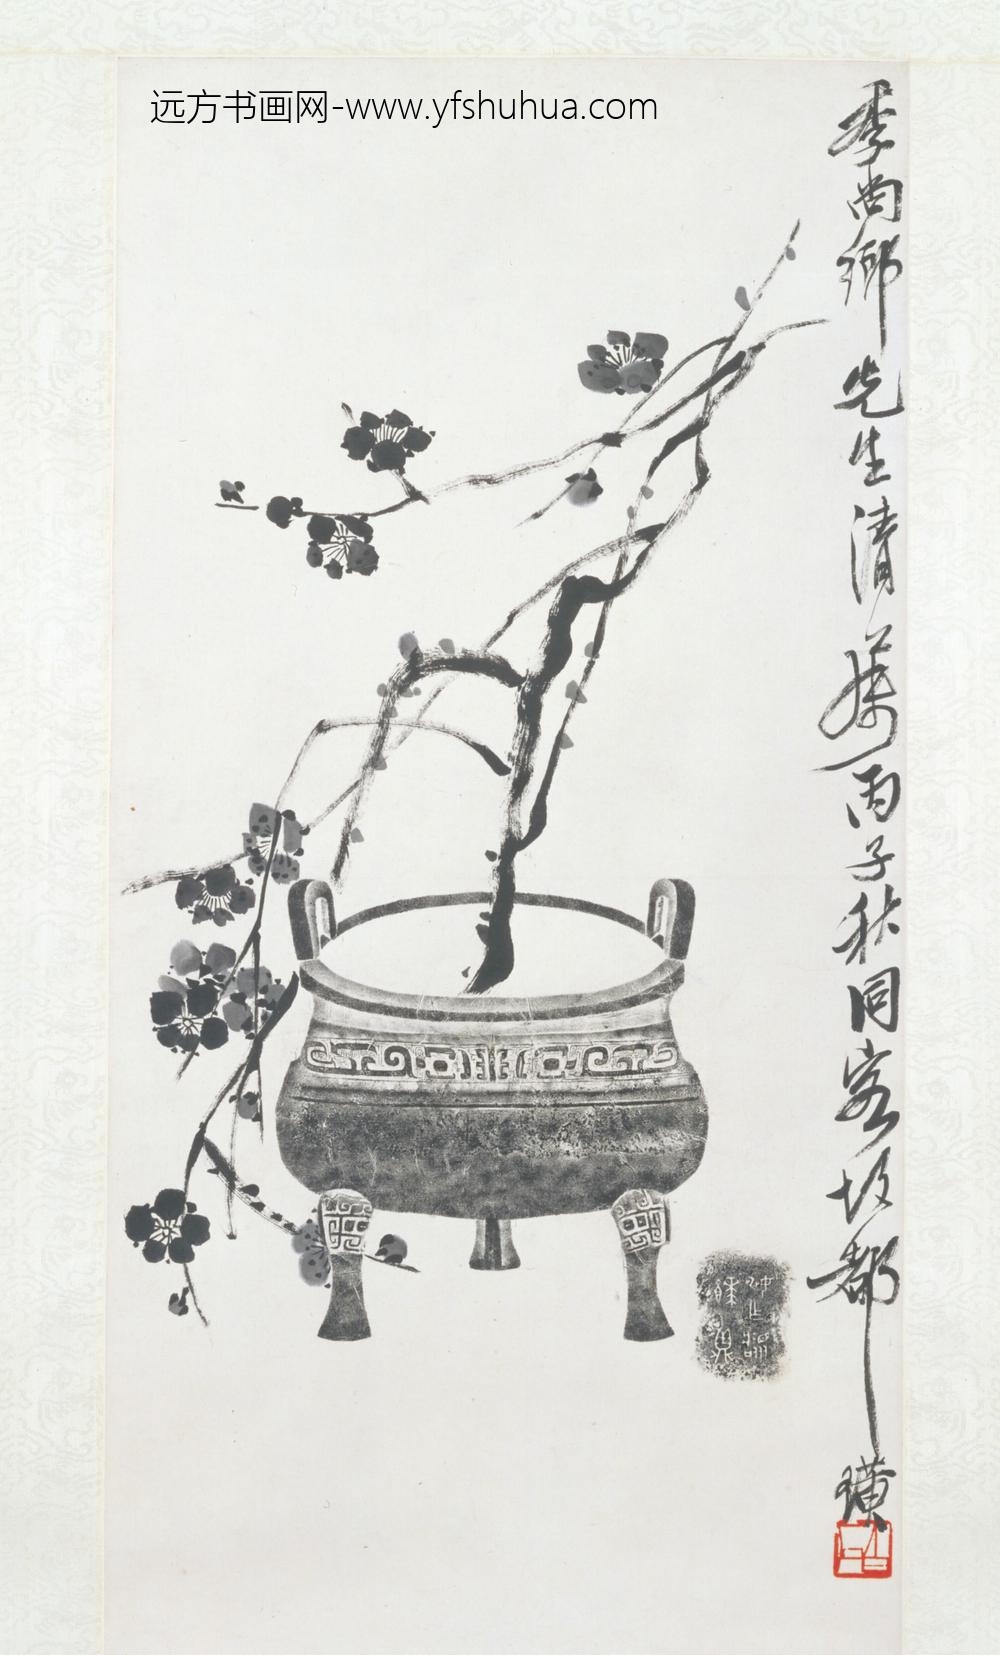 远方书画网-www.yfshuhua.com
季尚乡先生清属丙子秋同客故都璜